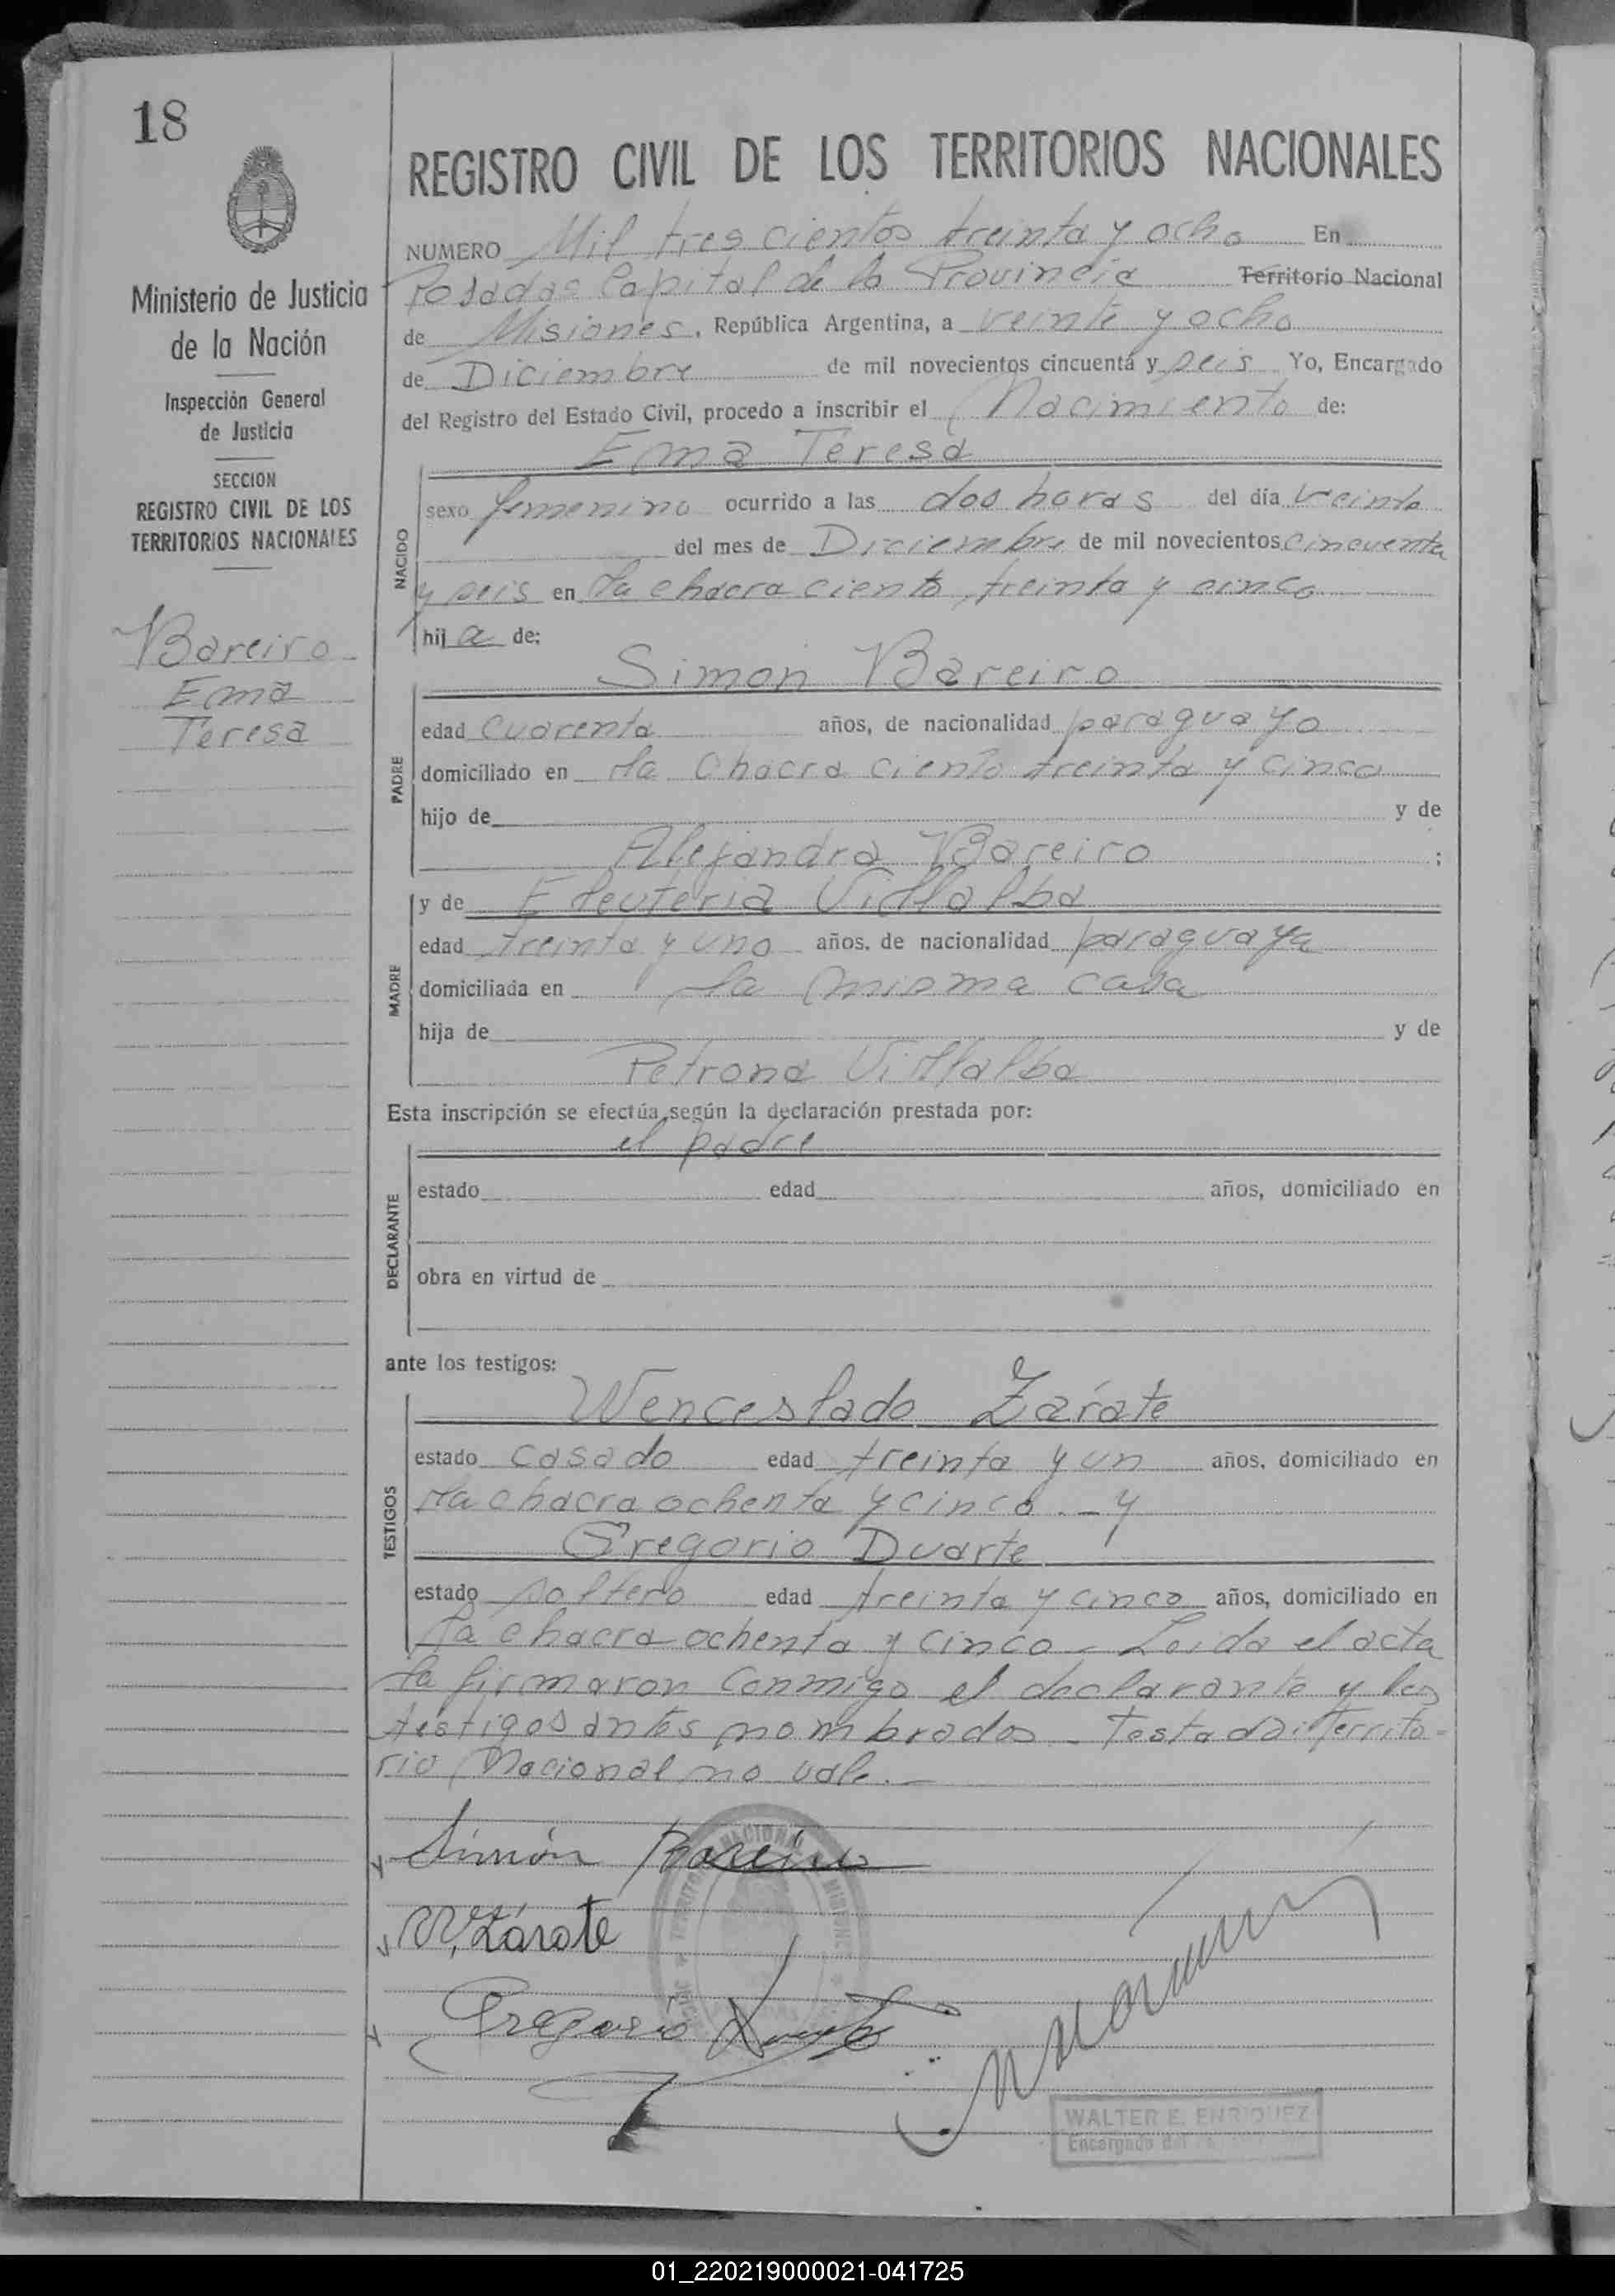 18
REGISTRO CIVIL DE LOS TERRITORIOS NACIONALES
NUMERO Mil tres cientos treinta y ocho En
Posadas Capital de la Provincia Territorio Nacional
de Misiones, República Argentina, a veinte y ocho
de Diciembre de mil novecientos cincuenta y seis Yo, Encargado
del Registro del Estado Civil, procedo a inscribir el Nacimiento de:
Ema Teresa
sexo femenino ocurrido a las dos horas del día veinte
del mes de Diciembre de mil novecientos cincuenta
y seis en la chacra ciento treinta y cinco
hija de:
NACIDO
Simon Bareiro
edad cuarenta años, de nacionalidad paraguayo
domiciliado en la chacra ciento treinta y cinco
hijo de y de
Alejandra Bareiro ;
PADRE
y de Eleuteria Villalba
edad treinta y uno años, de nacionalidad paraguaya
domiciliada en la misma casa
hija de y de
Petrona Villalba
MADRE
Esta inscripción se efectúa según la declaración prestada por:
el padre
estado edad años, domiciliado en
obra en virtud de
DECLARANTE
ante los testigos:
Wenceslado Zárate
estado casado edad treinta y un años, domiciliado en
la chacra ochenta y cinco.- y
Gregorio Duarte
estado soltero edad treinta y cinco años, domiciliado en
la chacra ochenta y cinco - Leida el acta
TESTIGOS
la firmaron conmigo el declarante y los
testigos antes nombrados - Testado: Territo-
rio Nacional no vale.-
Simón Bareiro
W. Zárate
Gregorio Duarte
WALTER E. ENRIQUEZ
Encargado del
Ministerio de Justicia
de la Nación
Inspección General
de Justicia
SECCION
REGISTRO CIVIL DE LOS
TERRITORIOS NACIONALES
Bareiro
Ema
Teresa
01_220219000021-041725